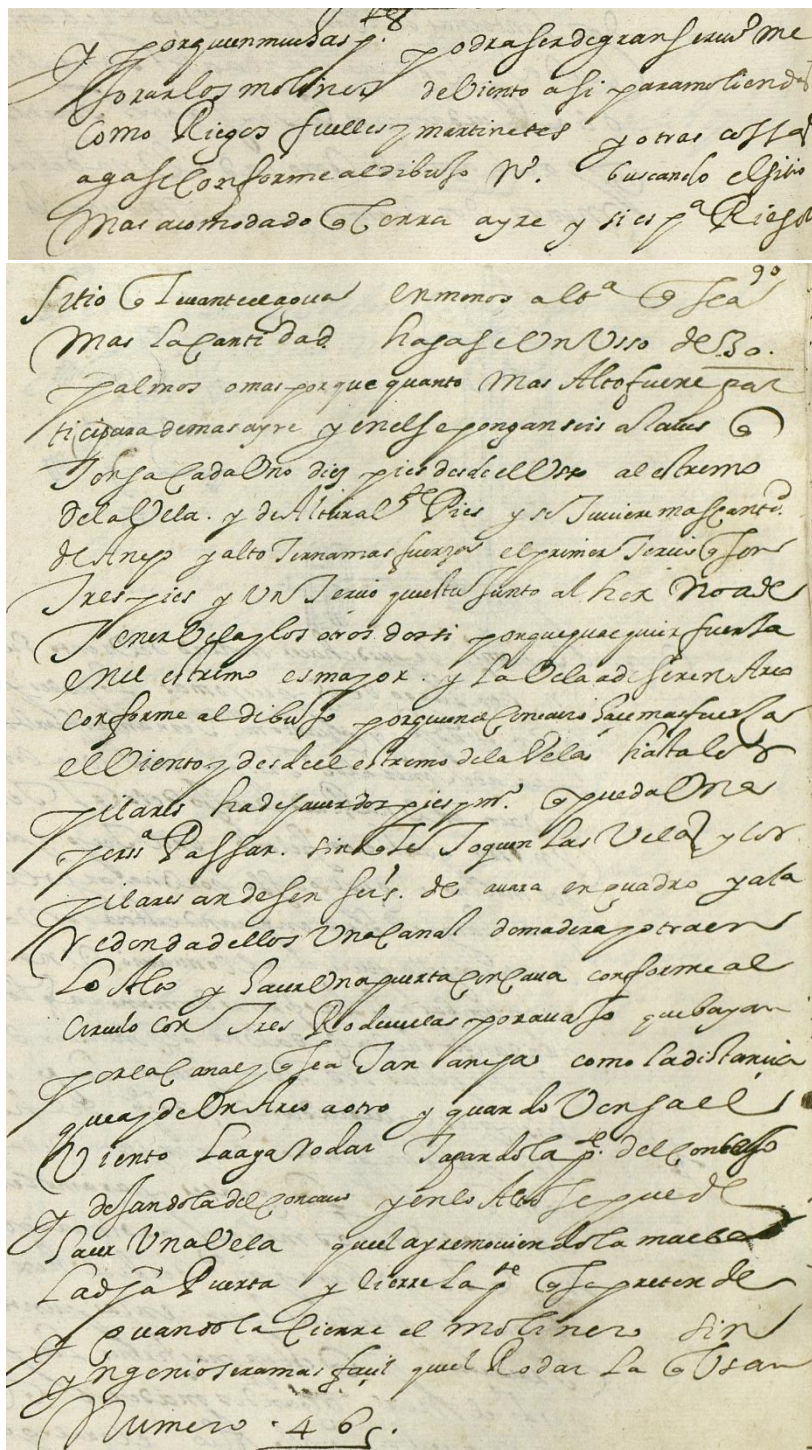 y porque en muchas p.tes podra ser de gran seruiº me
Jorar los molinos de Viento asi para moliendas
Como Riegos fuelles y martinetes y otras cossas
agase Conforme al dibuJo Nº. buscando el sitio
Mas acomodado q Terna ayre y si es pª Riego
90
sitio q leuante el agua en menos altª q sea
Mas la Cantidad hagase Un Usso de 30.
palmos o mas porque quanto Mas Alto fuere par
ticipara de mas ayre y en el se pongan seis alaues q
Tenga Cada Uno diez pies desde el Usso al estremo
de la Vela. y de Altura Pies y si Tuuiere mas Cantd.
de Ancho y alto Terna mas fuerza el primer Tercio q son
Tres pies y Un Tercio questa Junto al No a de
Tener Vela y los otros dos si porque qualquier fuerza
en el estremo es mayor. y La Vela a de ser en Arco
conforme al dibuJo porque en el Concauo hace mas fuerza
el Viento y desde el estremo de la Vela hasta los
pilares ha de hauer dos pies pª. q pueda Una
persª Passar. sin q le Toquen Las Velas y los
pilares an de ser seis. de a uara en quadro y a la
redonda dellos Una Canal de madera y otra en
Lo Alto y hacer Una puerta Concaua conforme al
circulo con Tres Rodeuelas por auaJo que bayan
por la Canal y q sea Tan ancha como la distancia
que ay de Un Arco a otro y quando Venga el
Viento La aga Rodar Tapandola pte. del ConbeJo
y deJandola del Concauo y en lo Alto se puede
hacer Una Vela que el ayre mouiendola mueba
La dha Puerta y cierre la pte q se pretende
y quando la Cierre el molinero sin
yngenio sera mas facil que el Rodar La q Usan
Numero. 46.